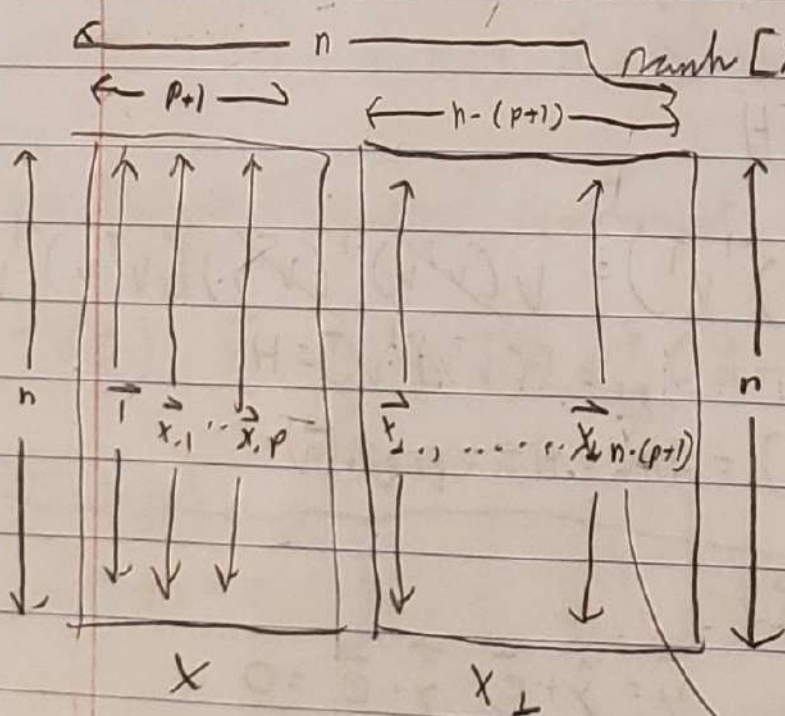 n
rank [
p+1
n-(p+1)
n
→1 →x.1 ... →x.p
→x⊥.1 ...... →x⊥ n-(p+1)
n
X
X⊥